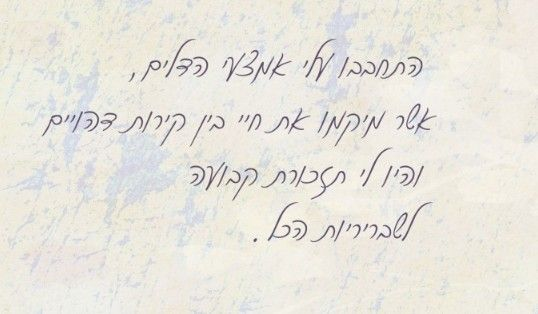 התחבבו עלי אמצעי הדלים,
אשר מיקמו את חיי בין קירות דהויים
והיו לי תזכורת קבועה
לשבריריות הכל.